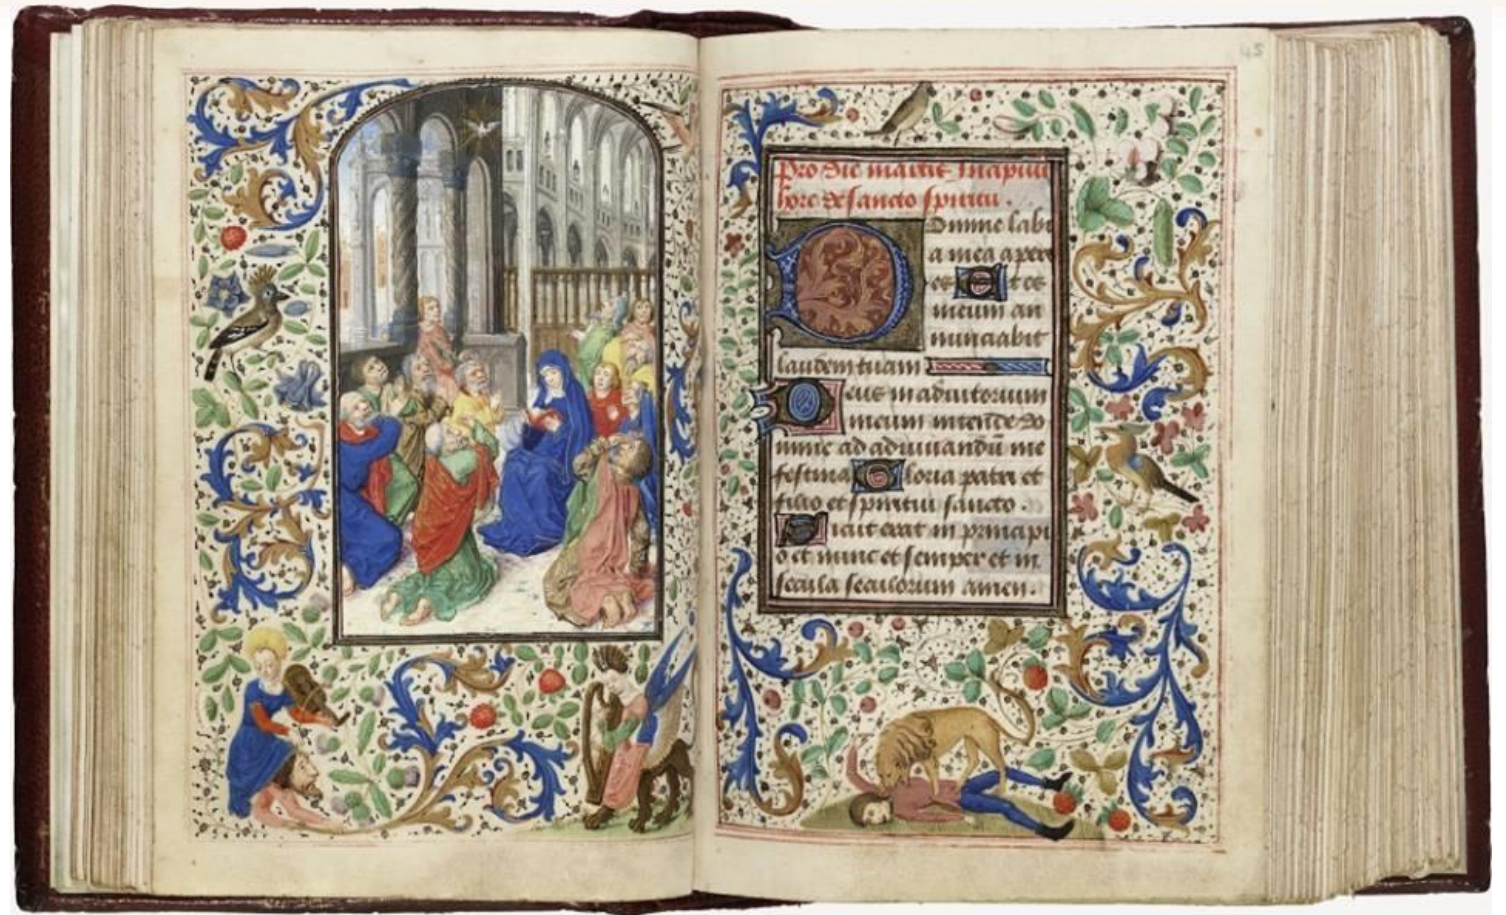 45
Pro die martis Incipiut
hore de sancto spiritu.
Domine labi
a mea apere
es Et os
meum an
nunciabit
laudem tuam
Deus in adiutorium
meum intende Do
mine ad adiuuandū me
festina Gloria patri et
filio et spiritui sancto.
Sicut erat in principi
o et nunc et semper et in
secula seculorum amen.